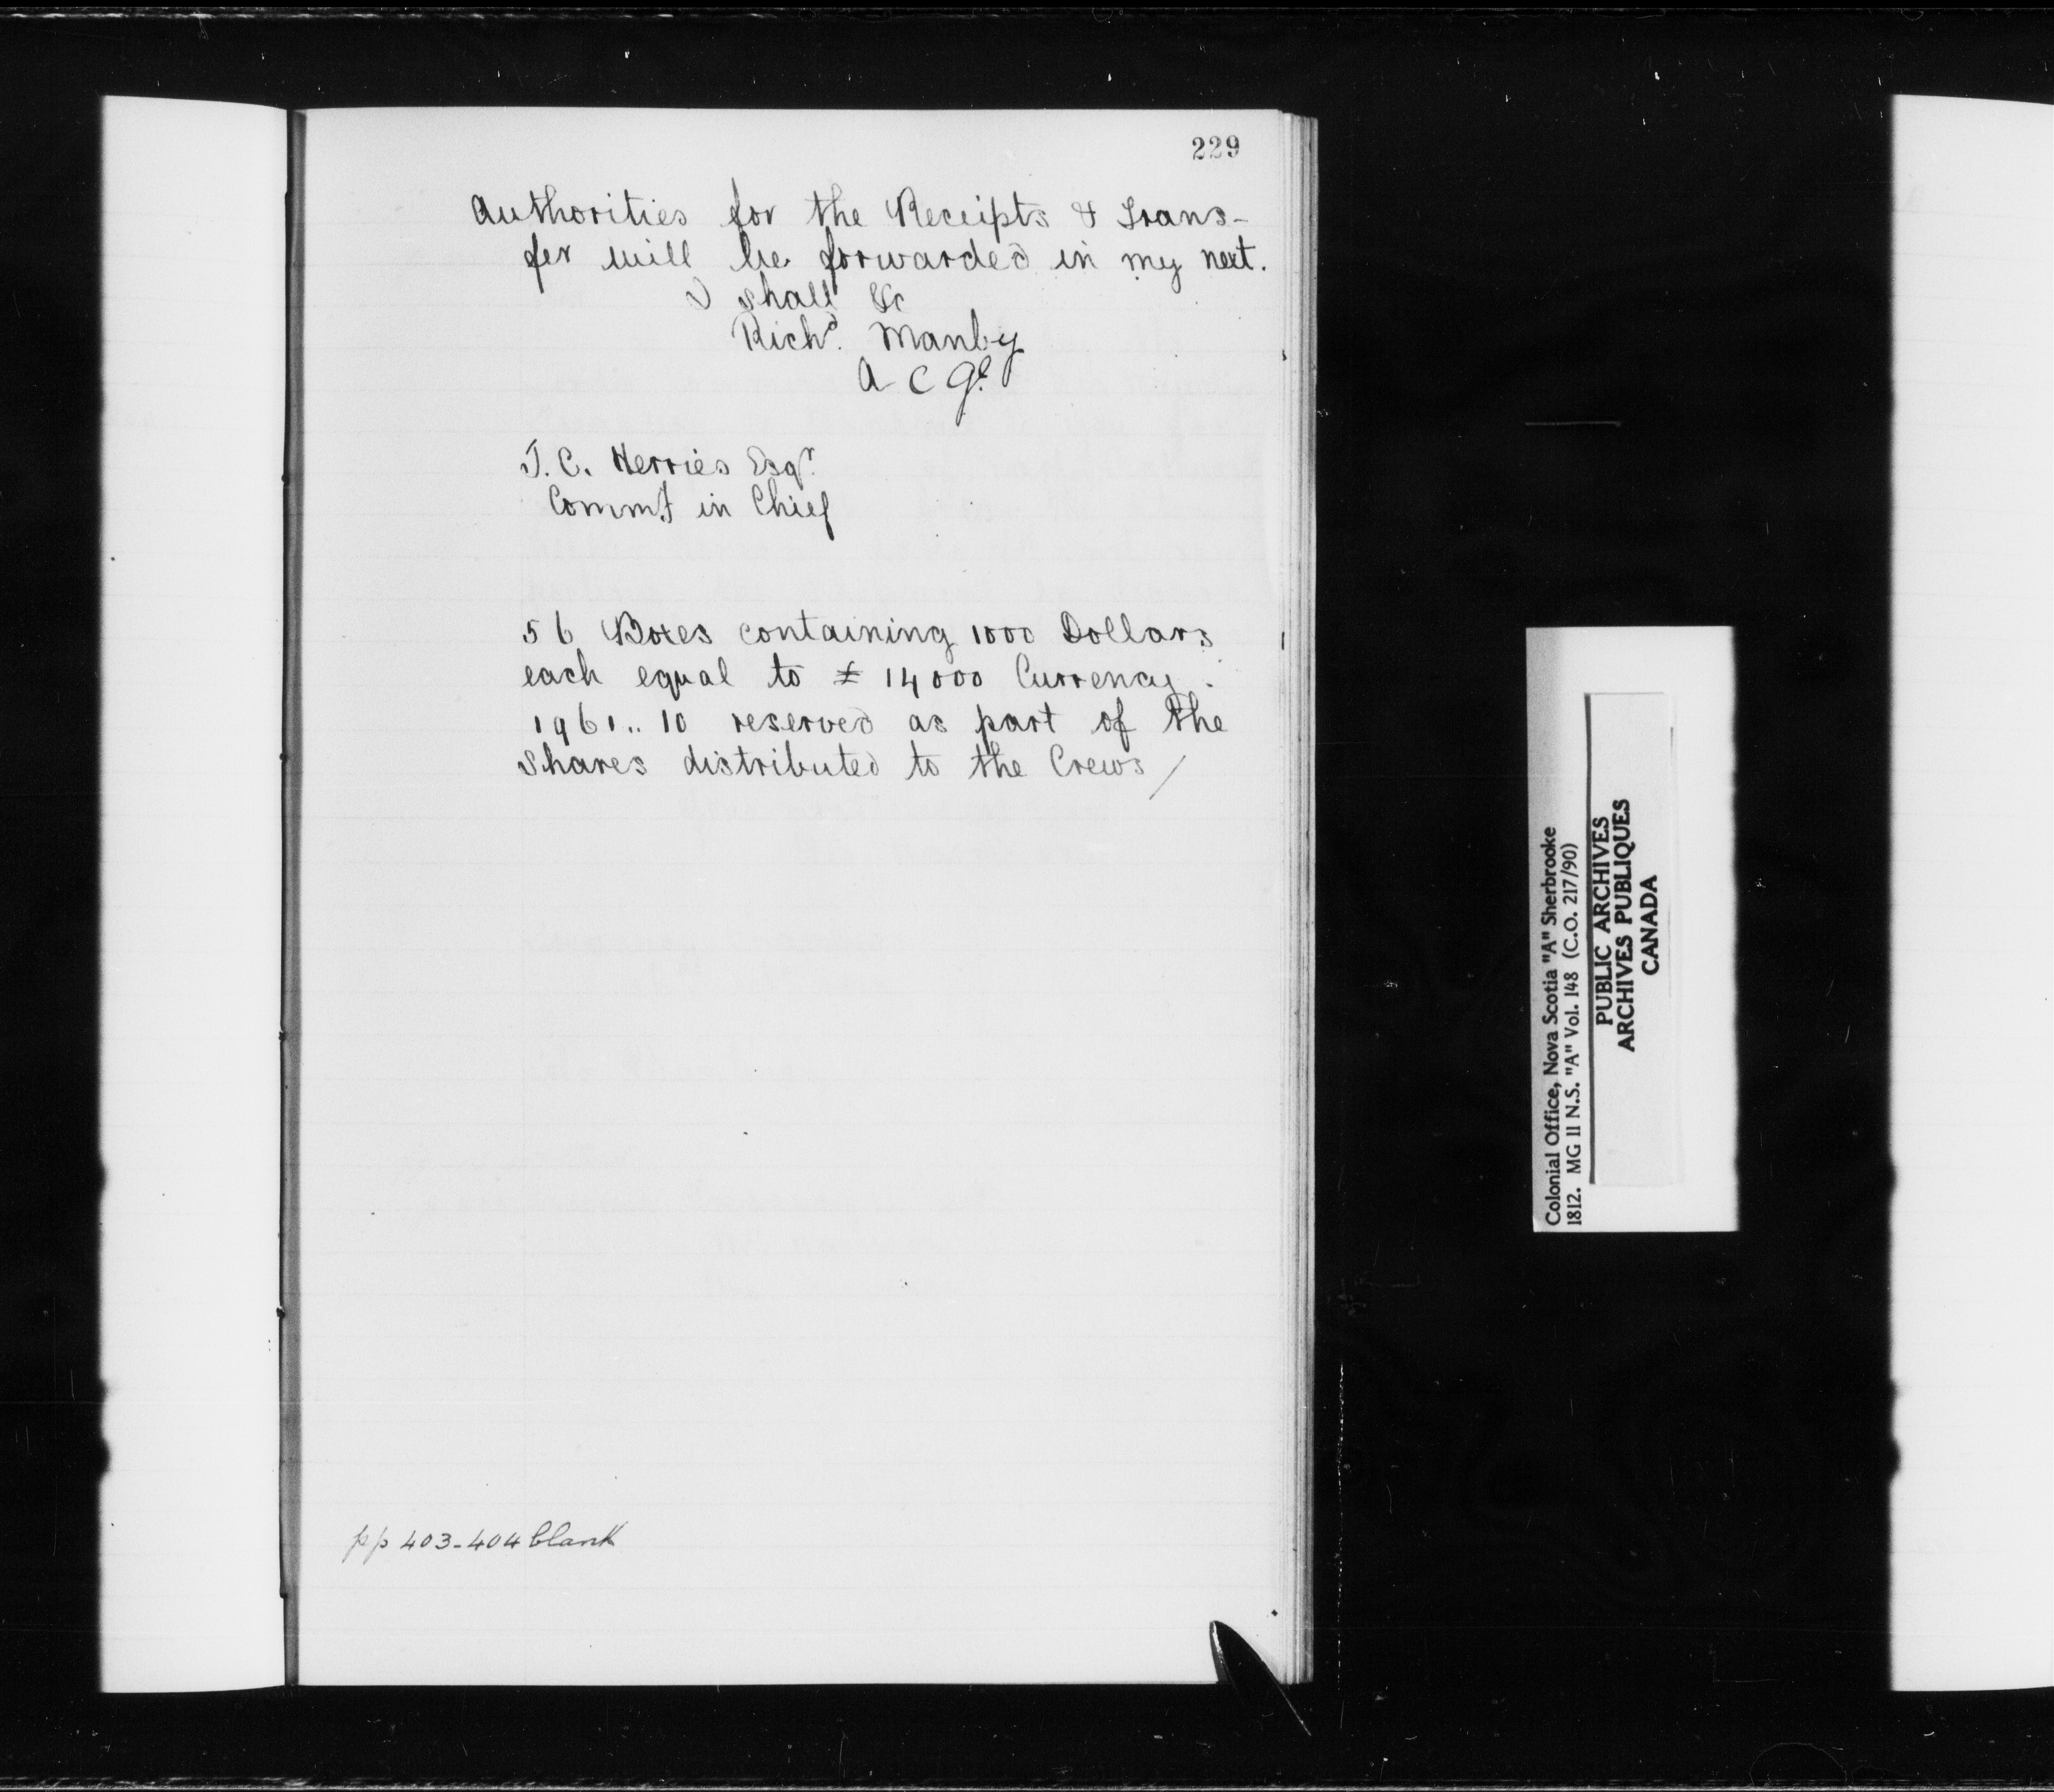 229
Authorities for the Receipts & Trans-
fer will be forwarded in my next.
I shall &c
Richd. Manby
A C Gl.
J. C. Herries Esqr.
Commt. in Chief
56 Boxes containing 1000 Dollars
each equal to £ 14000 Currency.
1961.. 10 reserved as part of the
Shares distributed to the Crews/
pp 403-404 blank
Colonial Office, Nova Scotia "A" Sherbrooke
1812. MG 11 N.S. "A" Vol. 148 (C.O. 217/90)
PUBLIC ARCHIVES
ARCHIVES PUBLIQUES
CANADA